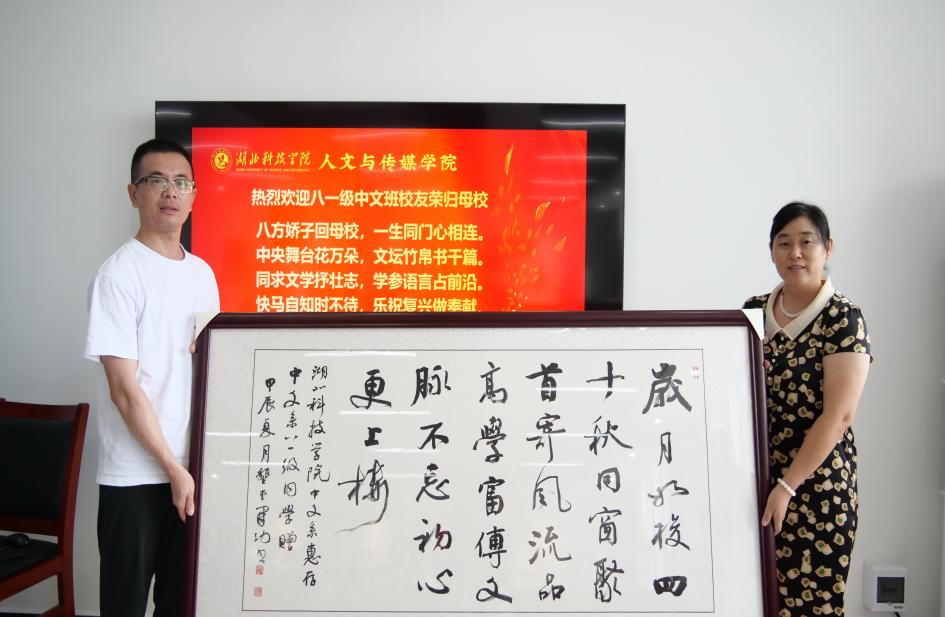 湖北科技学院 人文与传媒学院
HUBEI UNIVERSITY OF SCIENCE AND TECHNOLOGY
热烈欢迎八一级中文班校友荣归母校
八方娇子回母校，一生同门心相连。
中央舞台花万朵，文坛竹帛书千篇。
同求文学抒壮志，学参语言占前沿。
快马自知时不待，乐祝复兴做奉献。
歲月如梭四
十秋同窗聚
首寄风流品
高學富傳文
脉不忘初心
更上楼
湖北科技学院中文系惠存
中文系八一级同学赠
甲辰夏月